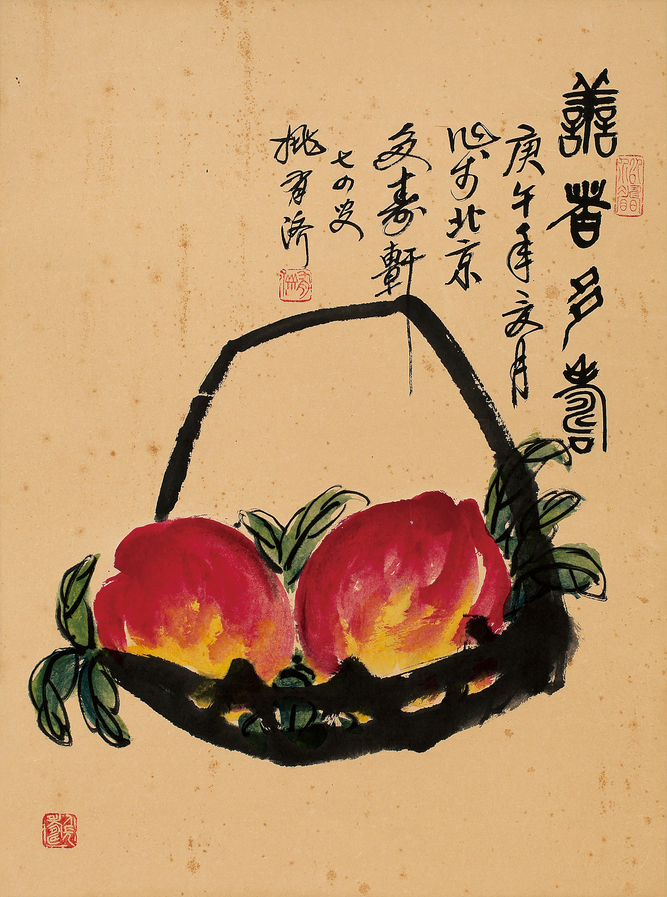 善者多壽
庚午年夏月
作於北京
多壽軒
七四叟
姚有济